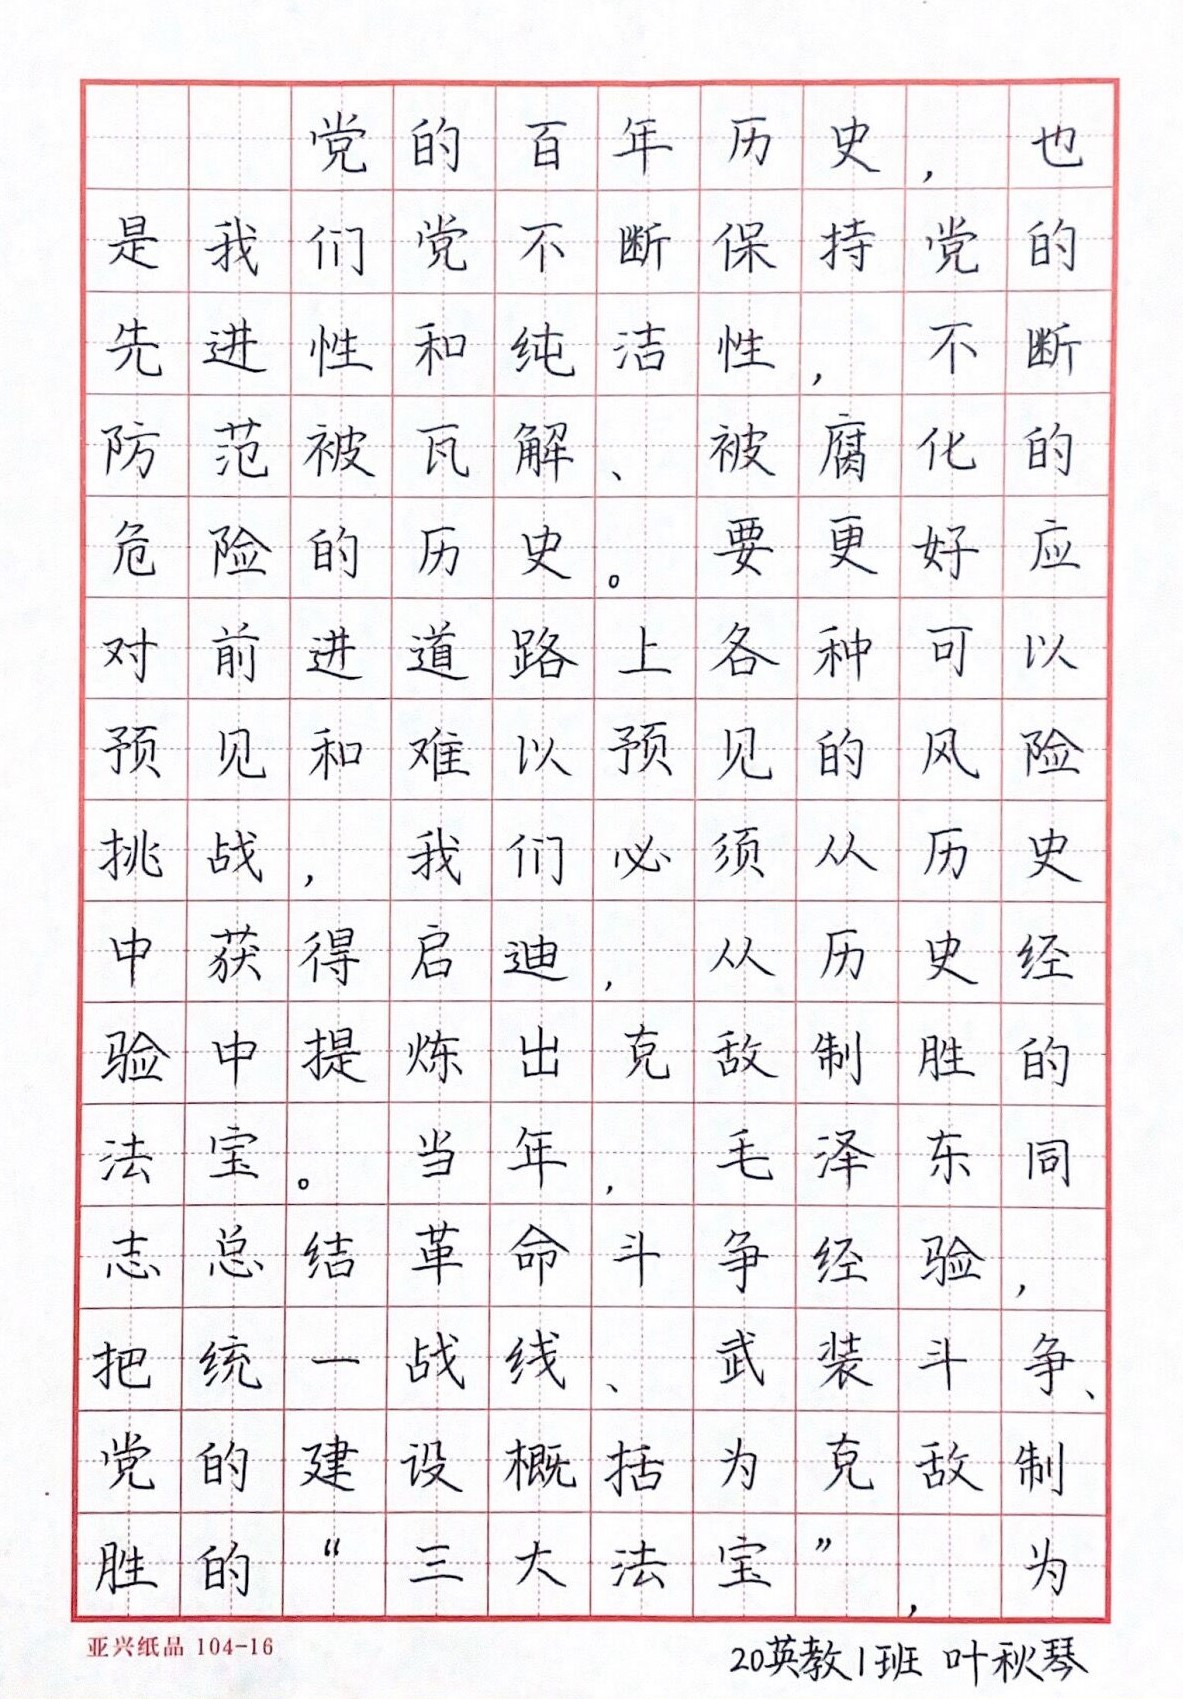 党的百年历史，也
是我们党不断保持党的
先进性和纯洁性，不断
防范被瓦解、被腐化的
危险的历史。要更好应
对前进道路上各种可以
预见和难以预见的风险
挑战，我们必须从历史
中获得启迪，从历史经
验中提炼出克敌制胜的
法宝。当年，毛泽东同
志总结革命斗争经验，
把统一战线、武装斗争、
党的建设概括为克敌制
胜的“三大法宝”，为
亚兴纸品 104-16
20英教1班 叶秋琴